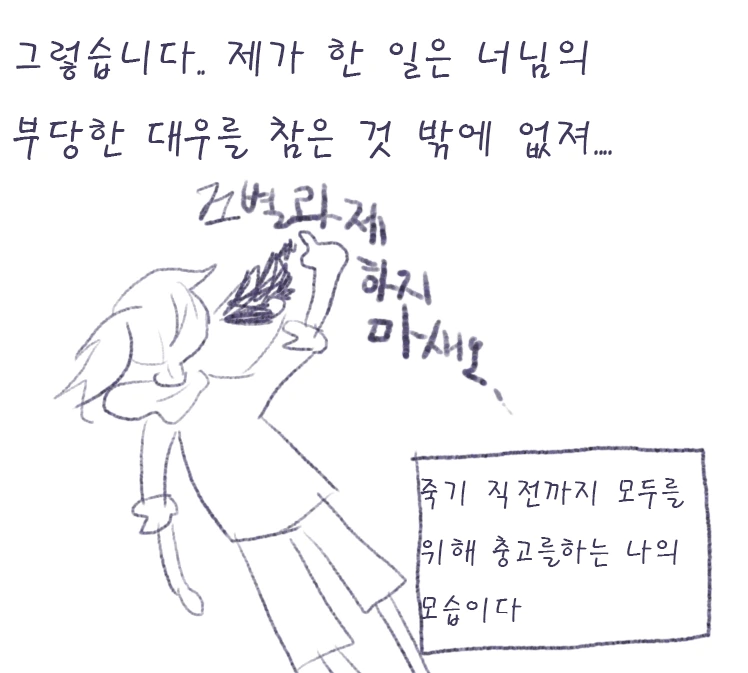 그렇습니다.. 제가 한 일은 너님의
부당한 대우를 참은 것 밖에 없져....
조별과제
하지
마새요.
죽기 직전까지 모두를
위해 충고를하는 나의
모습이다